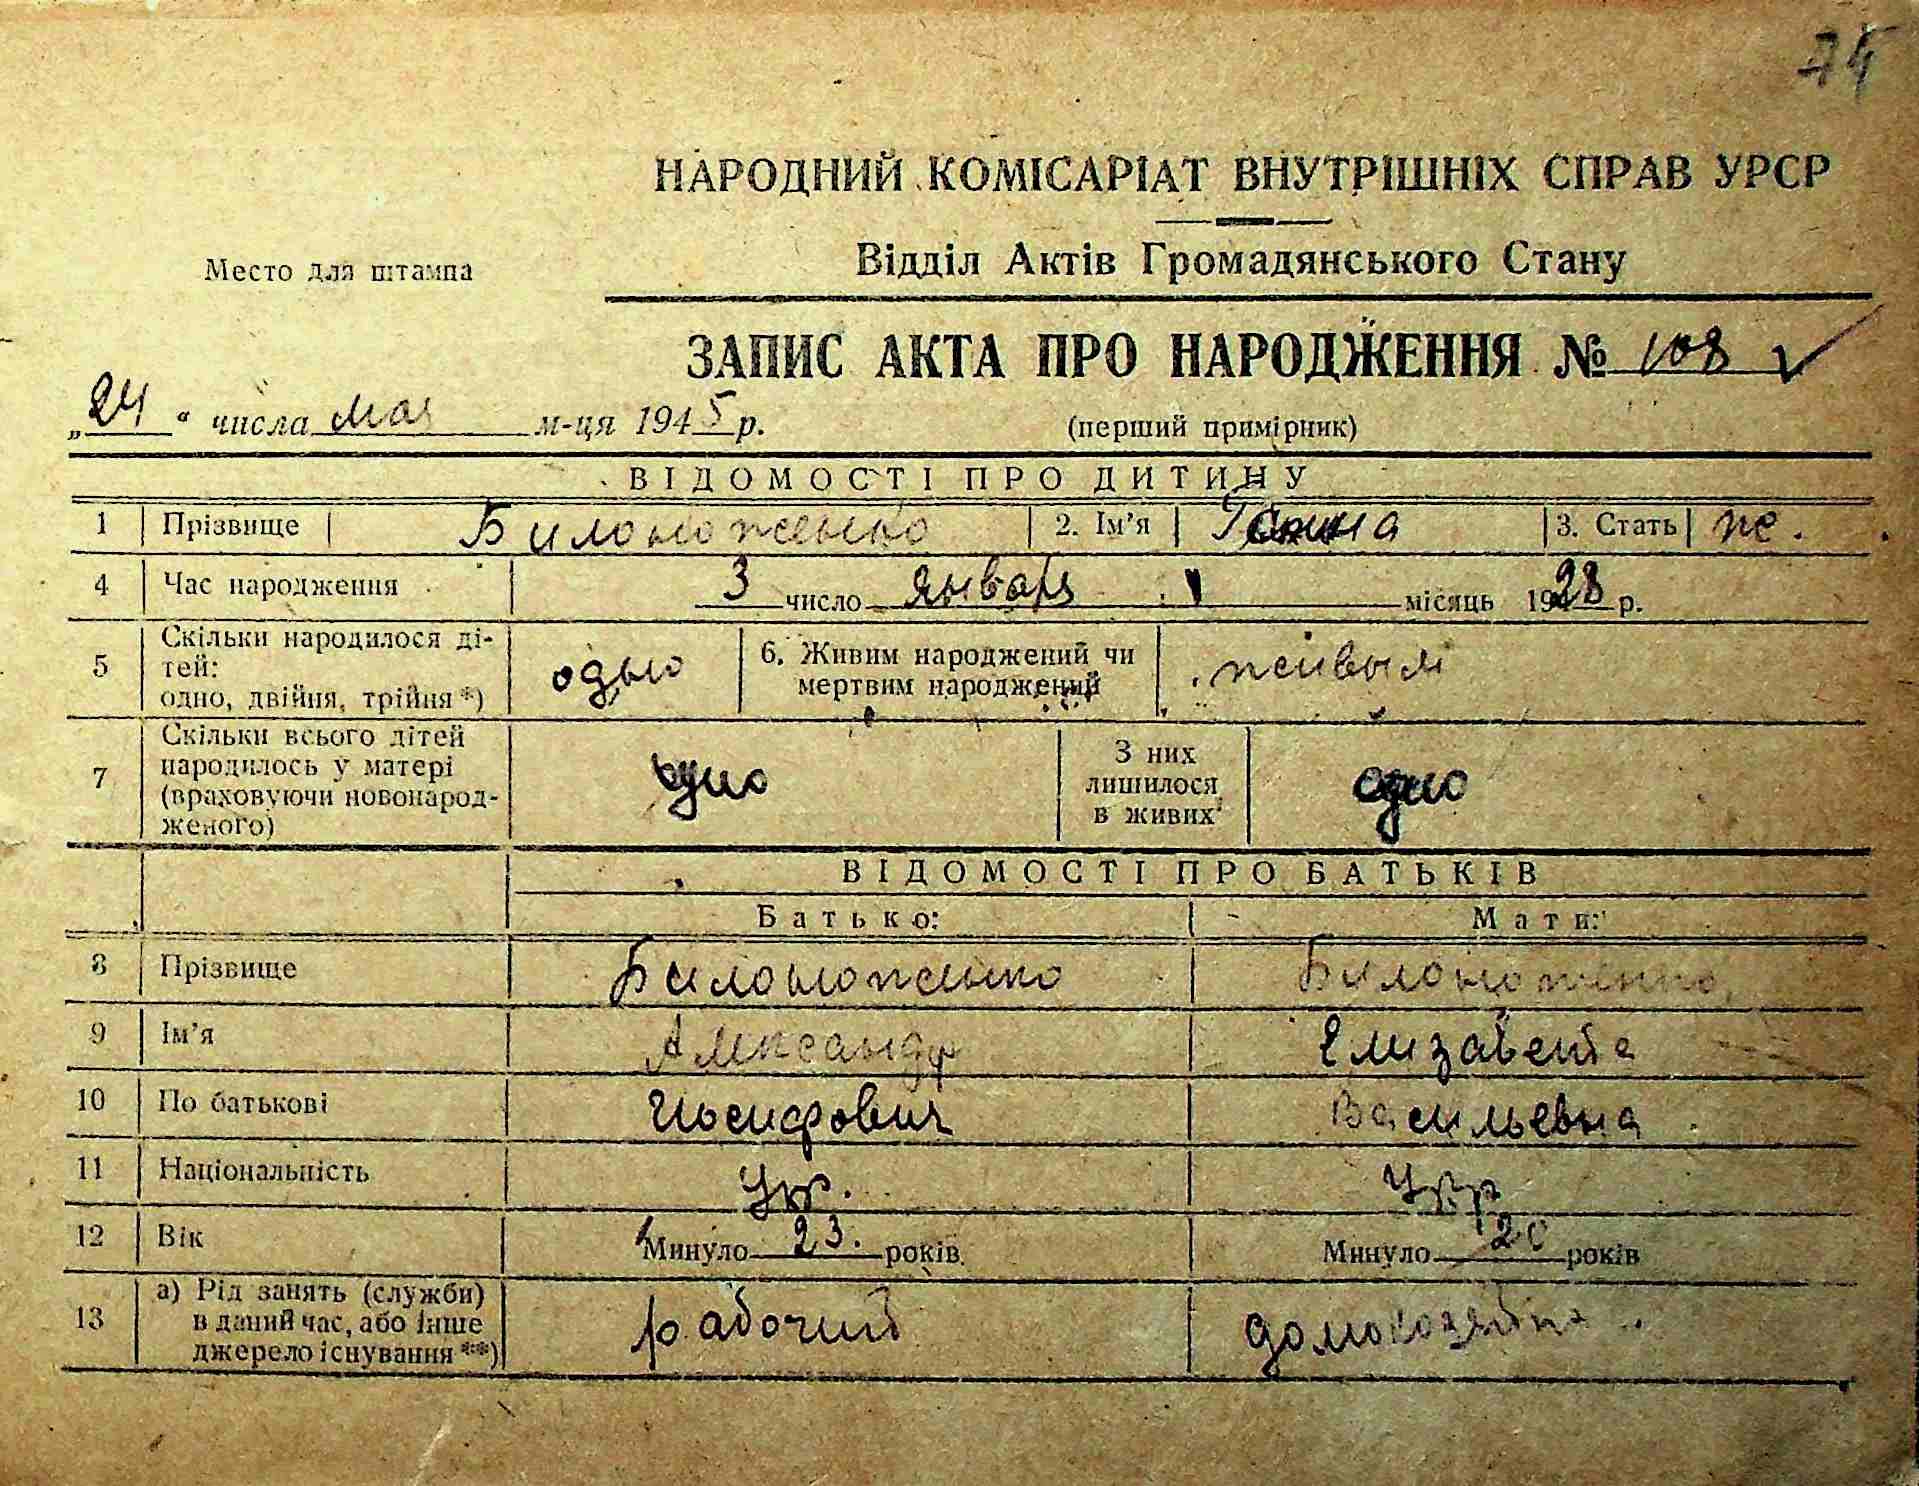 НАРОДНИЙ КОМІСАРІАТ ВНУТРІШНІХ СПРАВ УРСР
Відділ Актів Громадянського Стану
Место для штампа
ЗАПИС АКТА ПРО НАРОДЖЕННЯ № 108
„24“ числа мая м-ця 1945 р.
(перший примірник)
ВІДОМОСТІ ПРО ДИТИНУ
1 Прізвище Билоноженко 2. Ім’я 3. Стать ж.
4 Час народження 3 число января місяць 1928 р.
5 Скільки народилося ді-
тей:
одно, двійня, трійня *)
одно
6. Живим народжений чи
мертвим народжений
живым
7 Скільки всього дітей
народилось у матері
(враховуючи новонарод-
женого)
одно
З них
лишилося
в живих
одно
ВІДОМОСТІ ПРО БАТЬКІВ
Батько: Мати:
8 Прізвище Билоноженко Билоноженко
9 Ім’я Александр Елизавета
10 По батькові Иосифович Васильевна
11 Національність Ук. Укр
12 Вік Минуло 23. років Минуло 20 років
13 а) Рід занять (служби)
в даний час, або інше
джерело існування **)
рабочий домохозяйка